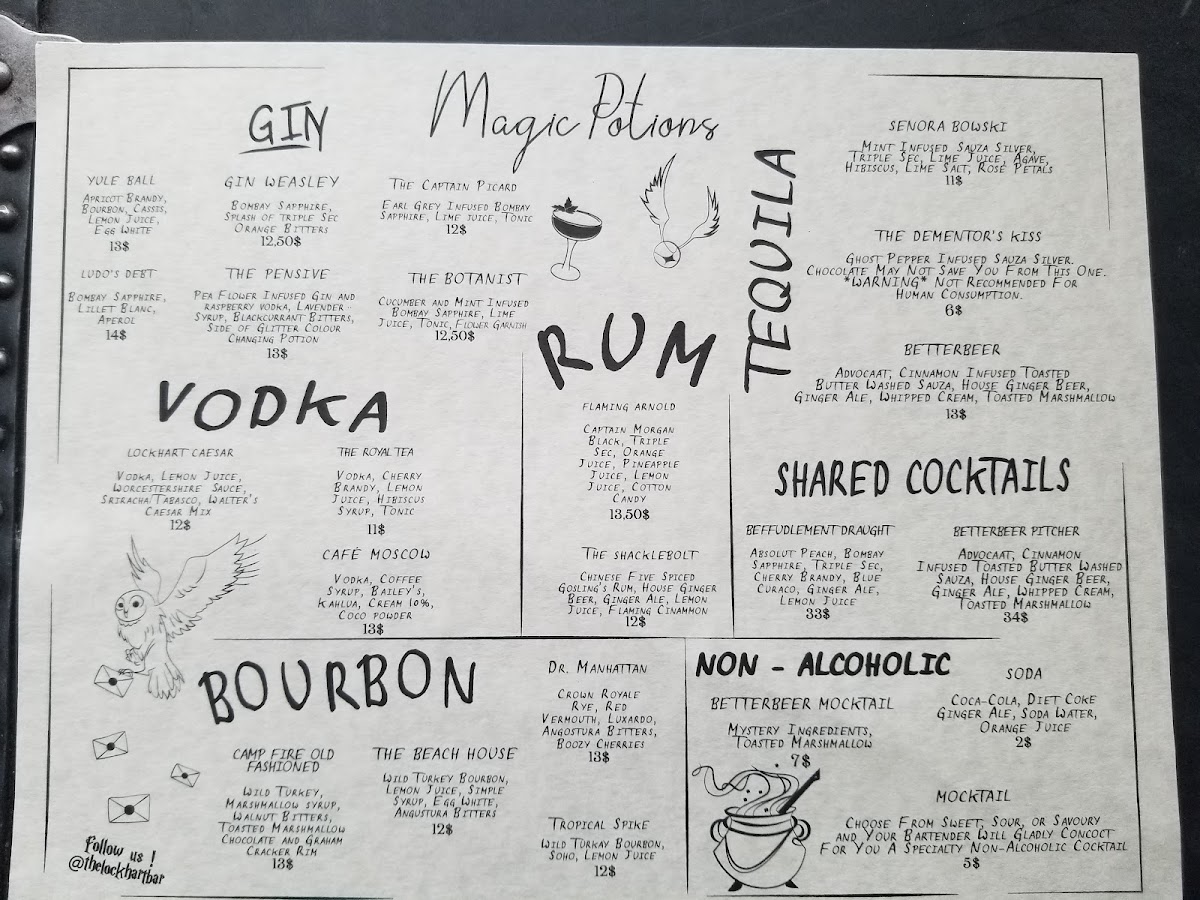 Magic Potions
GIN
YULE BALL
APRICOT BRANDY,
BOURBON, CASSIS,
LEMON JUICE,
EGG WHITE
13$
GIN WEASLEY
BOMBAY SAPPHIRE,
SPLASH OF TRIPLE SEC
ORANGE BITTERS
12,50$
THE CAPTAIN PICARD
EARL GREY INFUSED BOMBAY
SAPPHIRE, LIME JUICE, TONIC
12$
LUDO'S DEBT
BOMBAY SAPPHIRE,
LILLET BLANC,
APEROL
14$
THE PENSIVE
PEA FLOWER INFUSED GIN AND
RASPBERRY VODKA, LAVENDER
SYRUP, BLACKCURRANT BITTERS,
SIDE OF GLITTER COLOUR
CHANGING POTION
13$
THE BOTANIST
CUCUMBER AND MINT INFUSED
BOMBAY SAPPHIRE, LIME
JUICE, TONIC, FLOWER GARNISH
12,50$
VODKA
LOCKHART CAESAR
VODKA, LEMON JUICE,
WORCESTERSHIRE SAUCE,
SRIRACHA/TABASCO, WALTER'S
CAESAR MIX
12$
THE ROYAL TEA
VODKA, CHERRY
BRANDY, LEMON
JUICE, HIBISCUS
SYRUP, TONIC
11$
CAFÉ MOSCOW
VODKA, COFFEE
SYRUP, BAILEY'S,
KAHLUA, CREAM 10%,
COCO POWDER
13$
RUM
FLAMING ARNOLD
CAPTAIN MORGAN
BLACK, TRIPLE
SEC, ORANGE
JUICE, PINEAPPLE
JUICE, LEMON
JUICE, COTTON
CANDY
13,50$
THE SHACKLEBOLT
CHINESE FIVE SPICED
GOSLING'S RUM, HOUSE GINGER
BEER, GINGER ALE, LEMON
JUICE, FLAMING CINAMMON
12$
TEQUILA
SENORA BOWSKI
MINT INFUSED SAUZA SILVER,
TRIPLE SEC, LIME JUICE, AGAVE,
HIBISCUS, LIME SALT, ROSE PETALS
11$
THE DEMENTOR'S KISS
GHOST PEPPER INFUSED SAUZA SILVER.
CHOCOLATE MAY NOT SAVE YOU FROM THIS ONE.
*WARNING* NOT RECOMMENDED FOR
HUMAN CONSUMPTION.
6$
BETTERBEER
ADVOCAAT, CINNAMON INFUSED TOASTED
BUTTER WASHED SAUZA, HOUSE GINGER BEER,
GINGER ALE, WHIPPED CREAM, TOASTED MARSHMALLOW
13$
SHARED COCKTAILS
BEFFUDLEMENT DRAUGHT
ABSOLUT PEACH, BOMBAY
SAPPHIRE, TRIPLE SEC,
CHERRY BRANDY, BLUE
CURACO, GINGER ALE,
LEMON JUICE
33$
BETTERBEER PITCHER
ADVOCAAT, CINNAMON
INFUSED TOASTED BUTTER WASHED
SAUZA, HOUSE GINGER BEER,
GINGER ALE, WHIPPED CREAM,
TOASTED MARSHMALLOW
34$
BOURBON
CAMP FIRE OLD
FASHIONED
WILD TURKEY,
MARSHMALLOW SYRUP,
WALNUT BITTERS,
TOASTED MARSHMALLOW
CHOCOLATE AND GRAHAM
CRACKER RIM
13$
THE BEACH HOUSE
WILD TURKEY BOURBON,
LEMON JUICE, SIMPLE
SYRUP, EGG WHITE,
ANGUSTURA BITTERS
12$
DR. MANHATTAN
CROWN ROYALE
RYE, RED
VERMOUTH, LUXARDO,
ANGOSTURA BITTERS,
BOOZY CHERRIES
13$
TROPICAL SPIKE
WILD TURKAY BOURBON,
SOHO, LEMON JUICE
12$
NON - ALCOHOLIC
BETTERBEER MOCKTAIL
MYSTERY INGREDIENTS,
TOASTED MARSHMALLOW
7$
SODA
COCA-COLA, DIET COKE
GINGER ALE, SODA WATER,
ORANGE JUICE
2$
MOCKTAIL
CHOOSE FROM SWEET, SOUR, OR SAVOURY
AND YOUR BARTENDER WILL GLADLY CONCOCT
FOR YOU A SPECIALTY NON-ALCOHOLIC COCKTAIL
5$
Follow us !
@thelockhartbar